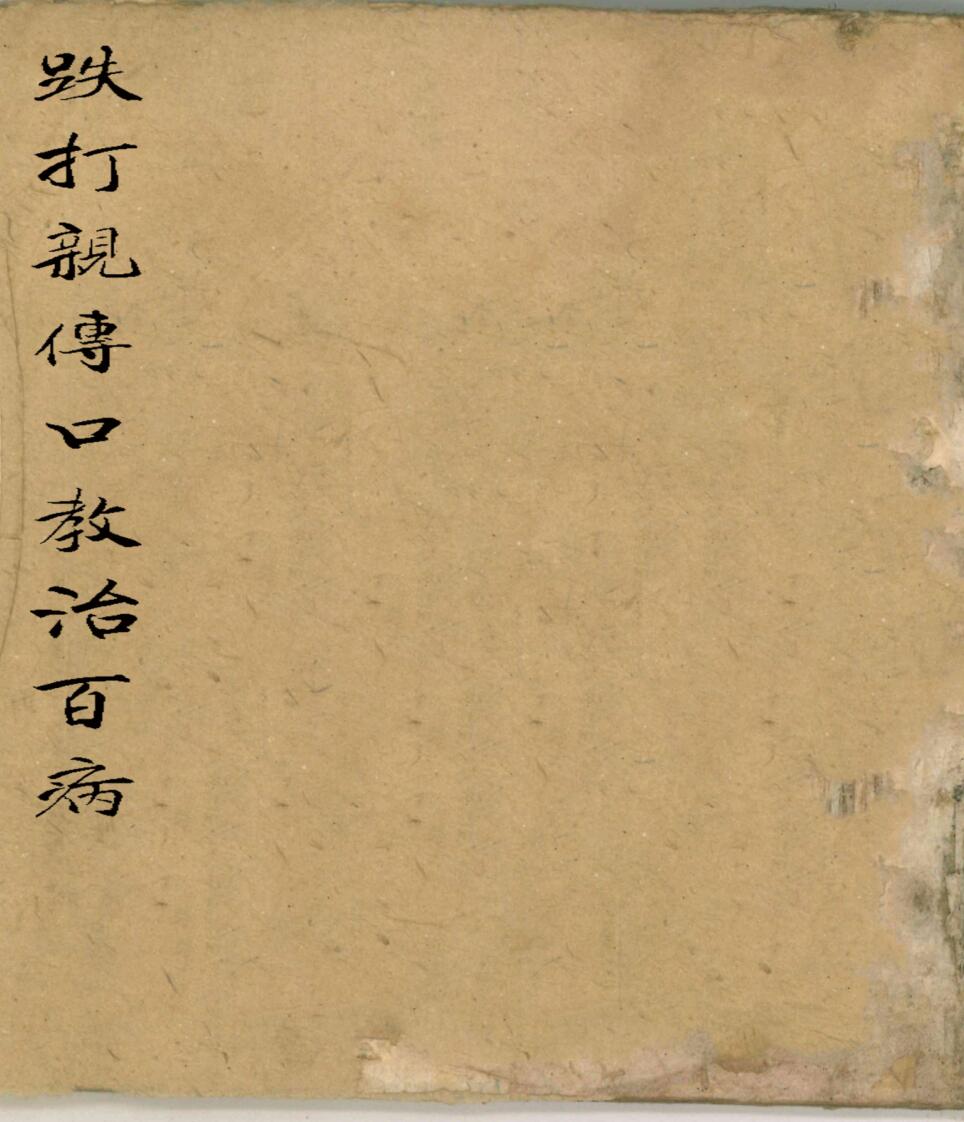 跌打親傳口教治百病